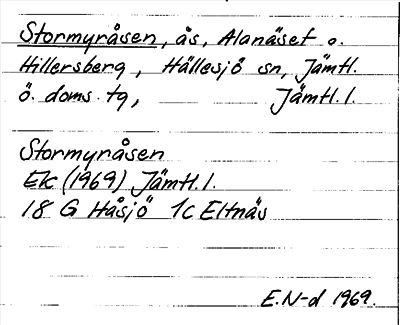 Stormyråsen, ås, Alanäset o.
Hillersberg, Hällesjö sn, Jämtl.
ö. doms. tg, Jämtl. l.
Stormyråsen
Ek (1969) Jämtl. l.
18 G Håsjö 1c Eltnäs
E. N-d 1969.